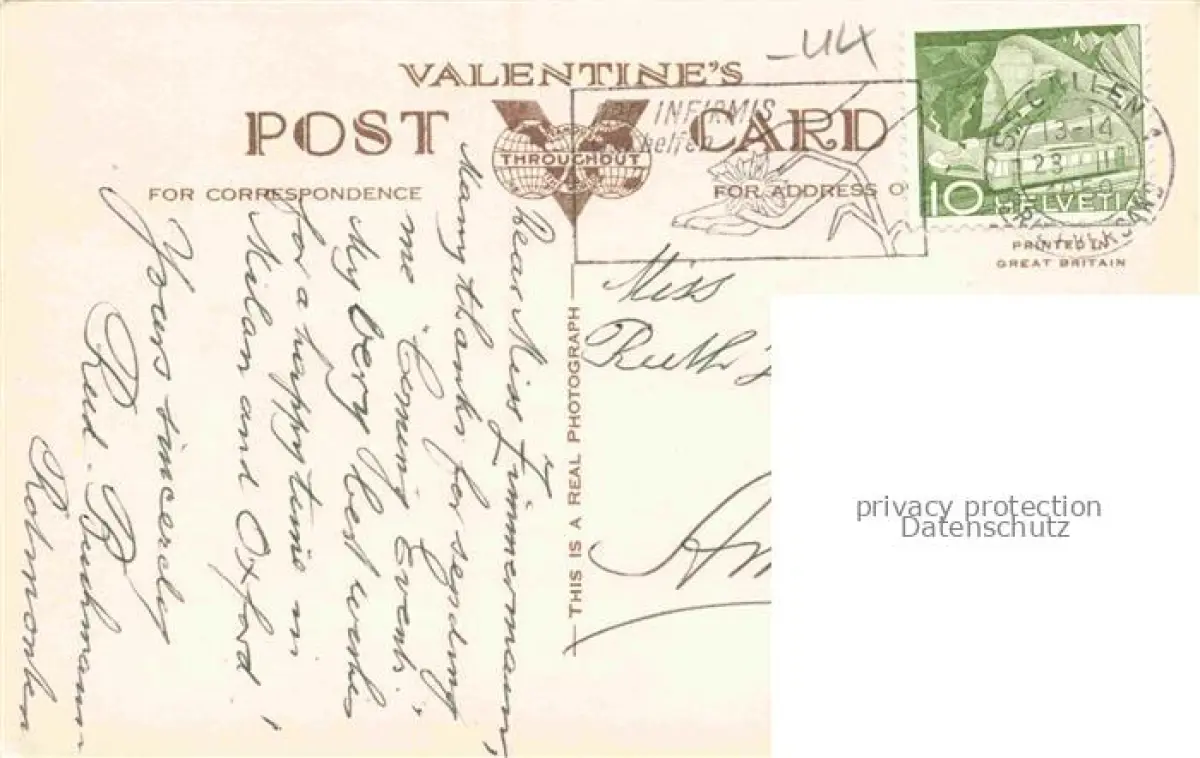 -44
VALENTINE'S
POST CARD
THROUGHOUT
INFIRMIS
helfen
FOR CORRESPONDENCE
FOR ADDRESS O
ST. GALLEN 1
13-14
23 II
10 HELVETIA
PRINTED IN
GREAT BRITAIN
Dear Miss Zimmermann,
Many thanks for sending
me "Coming Events."
My very best wishes
for a happy time in
Milan and Oxford!
Yours sincerely
Rud. Buchmann
THIS IS A REAL PHOTOGRAPH
Miss
Ruth
privacy protection
Datenschutz